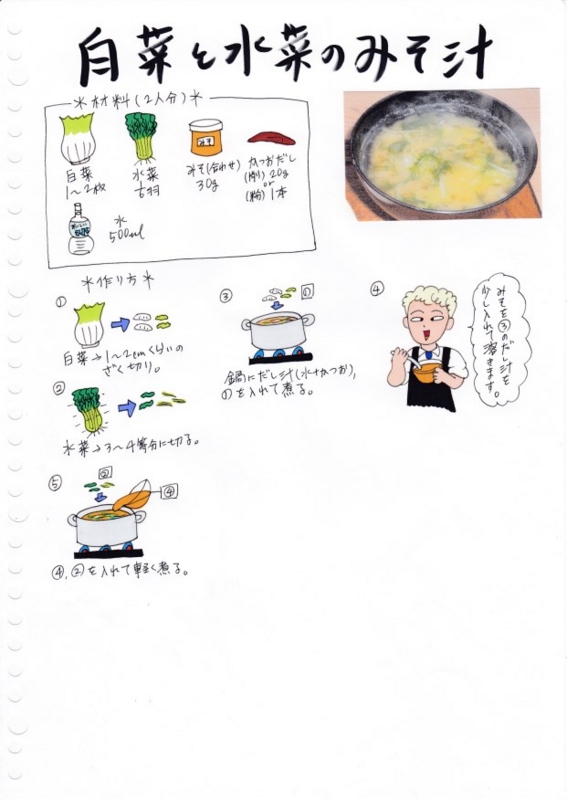 白菜と水菜のみそ汁
＊材料(2人分)＊
白菜
1〜2枚
水菜
みそ
みそ(合わせ)
30g
かつおだし
(削) 20g
or
(粉) 1本
水
500ml
＊作り方＊
①
白菜→1〜2cmくらいの
ざく切り。
②
水菜→3〜4等分に切る。
③
①
鍋にだし汁(水+かつお),
①を入れて煮る。
④
みそを③のだし汁を
少し入れて溶きます。
⑤
②
④
④,②を入れて軽く煮る。